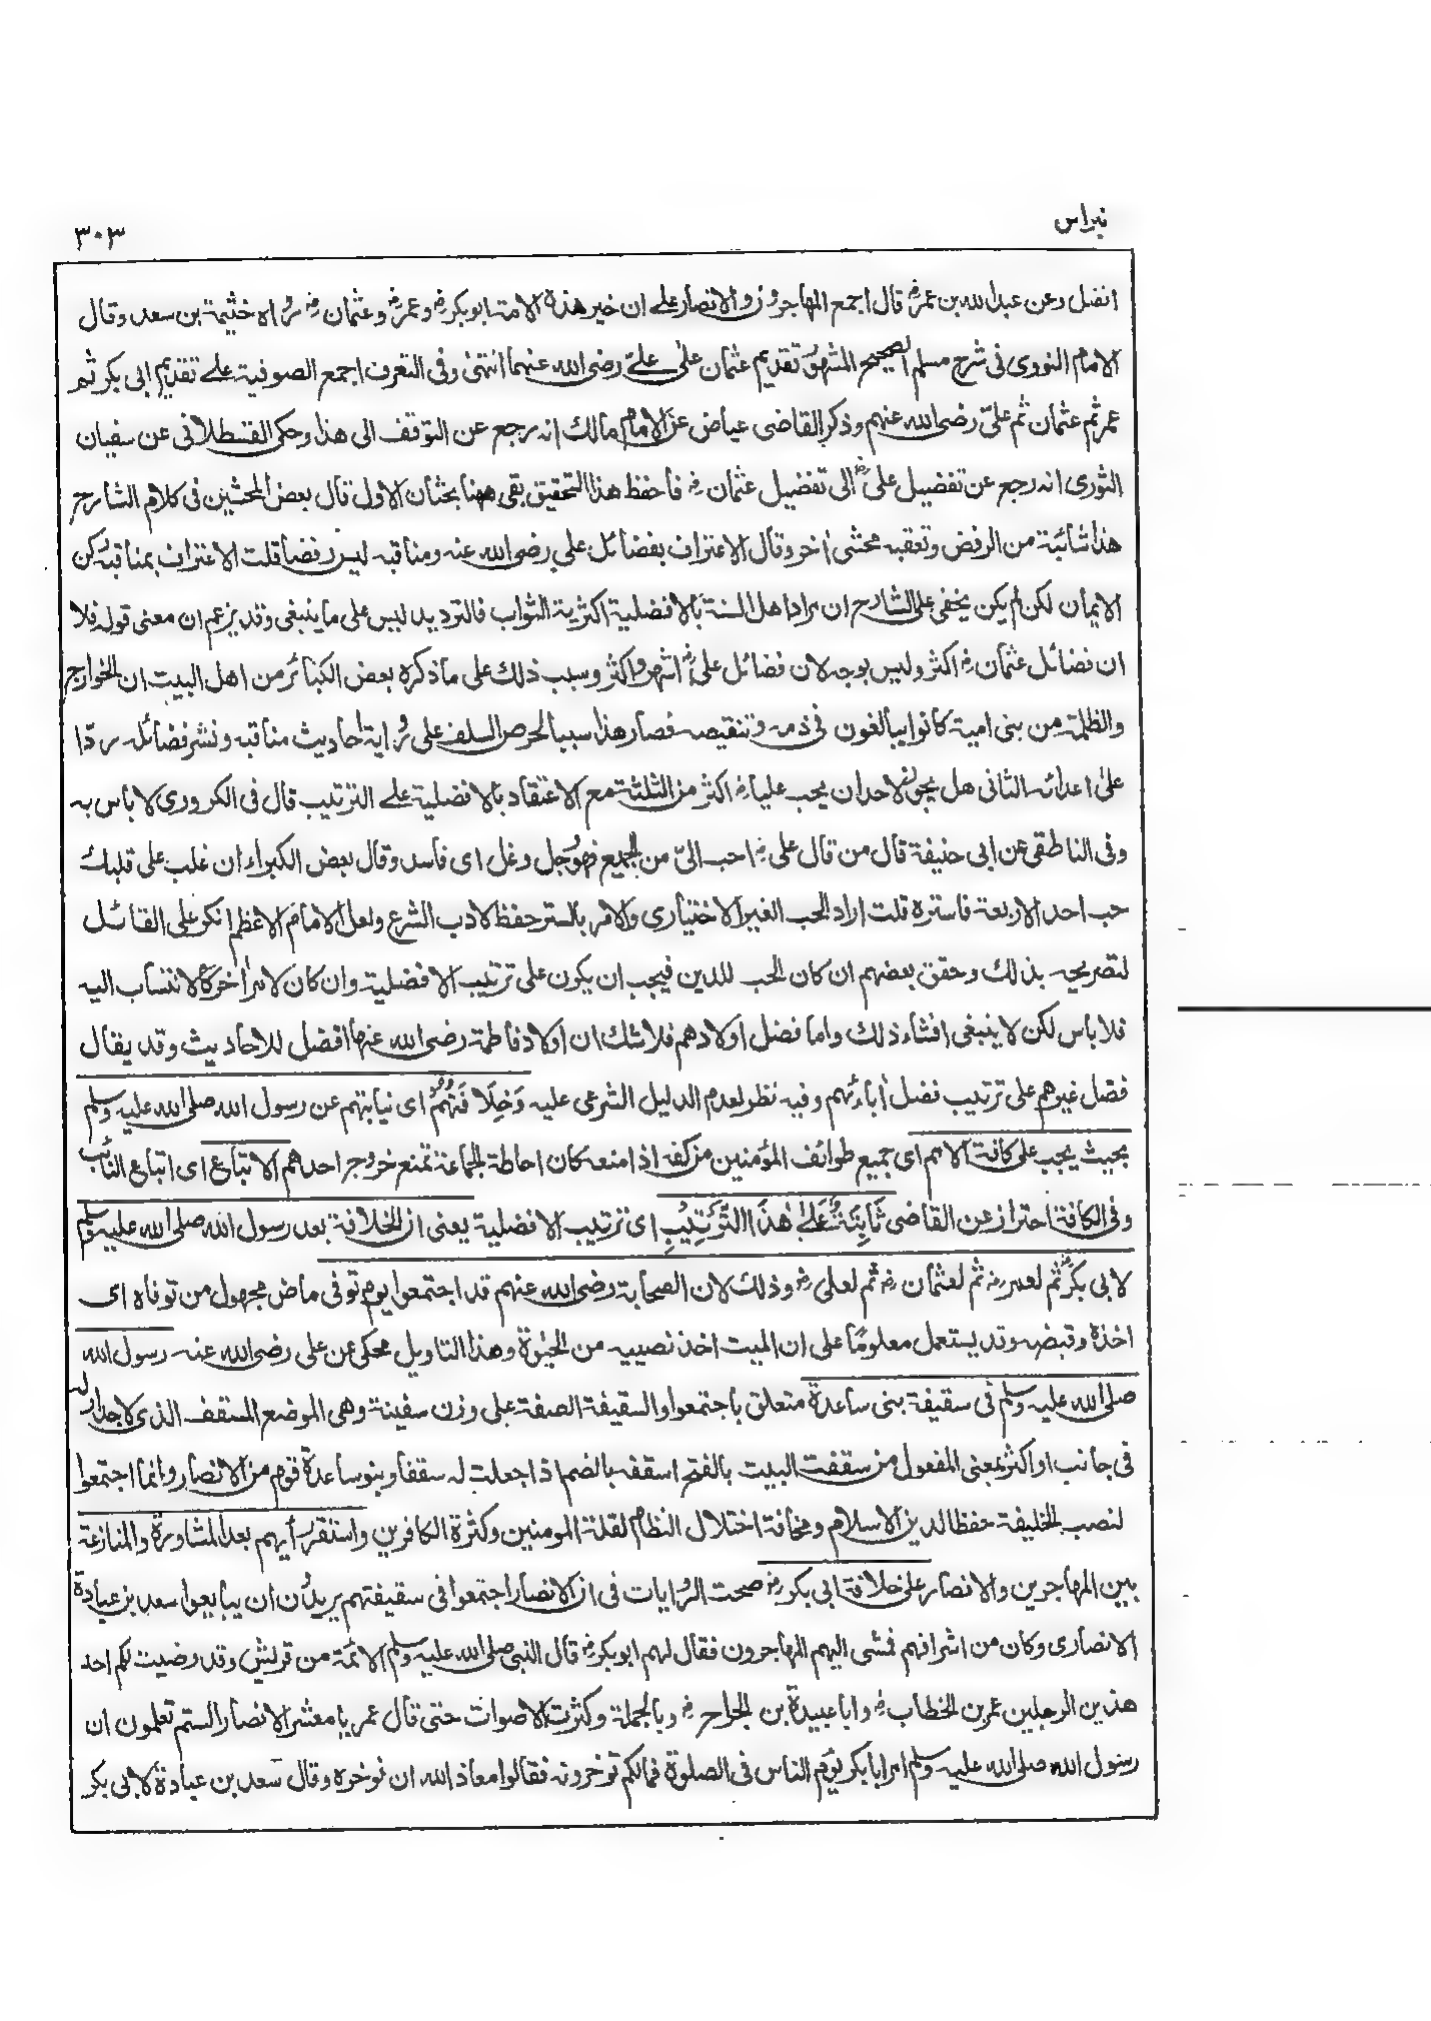 نبراس ٣٠٣
افضل وعن عبد الله بن عمرؓ قال اجمع المهاجرون والانصار علے ان خير هذه الامة ابو بكرؓ وعمرؓ وعثمانؓ رواه خثيمة بن سعد وقال
الامام النووى فى شرح مسلم الصحيح المشهور تقديم عثمان على علىّ رضى الله عنهما انتهى وفى التعرف اجمع الصوفية علے تقديم ابى بكر ثم
عمر ثم عثمان ثم علىّ رضى الله عنهم وذكر القاضى عياض عن الامام مالك انه رجع عن التوقف الى هذا وحكى القسطلانى عن سفيان
الثورى انه رجع عن تفضيل علىؓ الى تفضيل عثمانؓ فاحفظ هذا التحقيق بقى ههنا بحثان الاول قال بعض المحشين فى كلام الشارح
هذا شائبة من الرفض وتعقبه محشى اخر وقال الاعتراف بفضائل على رضى الله عنه ومناقبه ليس رفضا قلت الاعتراف بمناقبه ركن
الايمان لكن لم يكن يخفى على الشارح ان مراد اهل السنة بالافضلية اكثرية الثواب فالترديد ليس على ما ينبغى وقد يزعم ان معنى قوله فلا
ان فضائل عثمانؓ اكثر وليس بوجه لان فضائل علىؓ اشهر واكثر وسبب ذلك على ما ذكره بعض الكبائر من اهل البيت ان الخوارج
والظلمة من بنى امية كانوا يبالغون فى ذمه وتنقيصه فصار هذا سببا لحرص السلف على رواية احاديث مناقبه ونشر فضائله ردّا
على اعدائه الثانى هل يجوز لاحد ان يحب علياؓ اكثر من الثلثة مع الاعتقاد بالافضلية علے الترتيب قال فى الكرورى لا باس به
وفى الناطقى عن ابى حنيفة قال من قال علىؓ احب الىّ من الجميع فهو رجل دغل اى فاسد وقال بعض الكبراء ان غلب على قلبك
حب احد الاربعة فاستره قلت اراد الحب الغير الاختيارى والامر بالستر حفظ لادب الشرع ولعل الامام الاعظم انكر على القائل
لتصريحه بذلك وحقق بعضهم ان كان الحب للدين فيجب ان يكون على ترتيب الافضلية وان كان لامر اخر كالانتساب اليه
فلا باس لكن لا ينبغى افشاء ذلك واما فضل اولادهم فلا شك ان اولاد فاطمة رضى الله عنها افضل للاحاديث وقد يقال
فضل غيرهم على ترتيب فضل اٰبائهم وفيه نظر لعدم الدليل الشرعى عليه وَخِلَافَتُهُمْ اى نيابتهم عن رسول الله صلى الله عليه وسلم
بحيث يجب على كافة الامم اى جميع طوائف المؤمنين من كفه اذا منعه كان احاطة الجماعة تمنع خروج احدهم الاتباع اى اتباع النائب
وفى الكافة احتراز عن القاضى ثَابِتَةٌ عَلٰى هٰذَا التَّرْتِيْبِ اى ترتيب الافضلية يعنى ان الخلافة بعد رسول الله صلى الله عليه وسلم
لابى بكرؓ ثم لعمرؓ ثم لعثمانؓ ثم لعلىؓ وذلك لان الصحابة رضى الله عنهم قد اجتمعوا يوم توفى ماض مجهول من توفاه اى
اخذه وقبضه وقد يستعمل معلوما على ان الميت اخذ نصيبه من الحيٰوة وهذا التاويل محكى عن على رضى الله عنه رسول الله
صلى الله عليه وسلم فى سقيفة بنى ساعدة متعلق باجتمعوا والسقيفة الصفة على وزن سفينة وهى الموضع المسقف الذى لا جدار له
فى جانب او اكثر بمعنى المفعول من سقفت البيت بالفتح اسقفه بالضم اذا جعلت له سقفا وبنو ساعدة قوم من الانصار وانما اجتمعوا
لنصب الخليفة حفظا لدين الاسلام ومخافة اختلال النظام لقلة المومنين وكثرة الكافرين واستقر رأيهم بعد المشاورة والمنازعة
بين المهاجرين والانصار على خلافة ابى بكرؓ صحت الروايات فى ان الانصار اجتمعوا فى سقيفتهم يريدون ان يبايعوا سعد بن عبادة
الانصارى وكان من اشرافهم فمشى اليهم المهاجرون فقال لهم ابو بكرؓ قال النبى صلى الله عليه وسلم الائمة من قريش وقد رضيت لكم احد
هذين الرجلين عمر بن الخطابؓ وابا عبيدة بن الجراحؓ وبالجملة وكثرت الاصوات حتى قال عمر يا معشر الانصار الستم تعلمون ان
رسول الله صلى الله عليه وسلم امر ابا بكر يؤم الناس فى الصلوة فما لكم توخرونه فقالوا معاذ الله ان نوخره وقال سعد بن عبادة لابى بكر